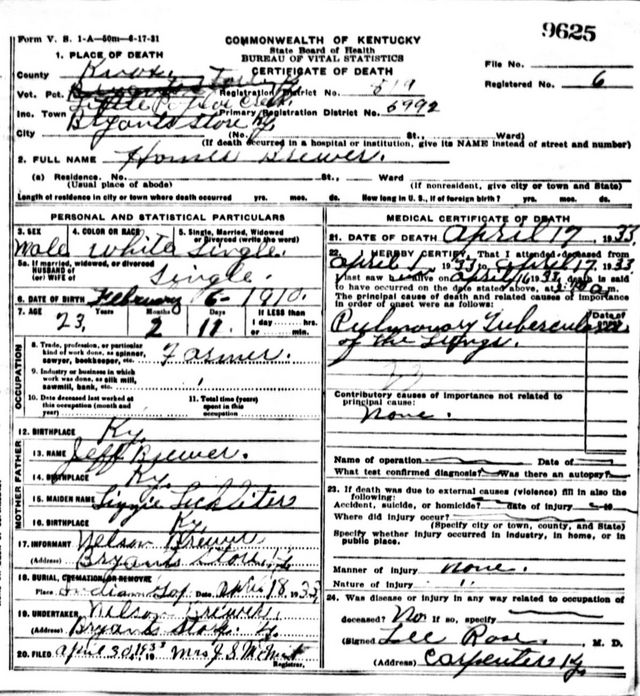 Form V. S. 1-A—50m—6-17-31
COMMONWEALTH OF KENTUCKY
9625
State Board of Health
BUREAU OF VITAL STATISTICS
CERTIFICATE OF DEATH
File No.
Registered No. 6
1. PLACE OF DEATH
County Knox
Vot. Pct. Registration District No. 519
Inc. Town Primary Registration District No. 5992
Bryants Store Ky.
City (No. St., Ward)
(If death occurred in a hospital or institution, give its NAME instead of street and number)
2. FULL NAME Brewer.
(a) Residence. No. St., Ward
(Usual place of abode) (If nonresident, give city or town and State)
Length of residence in city or town where death occurred yrs. mos. ds. How long in U. S., if of foreign birth? yrs. mos. ds.
PERSONAL AND STATISTICAL PARTICULARS
3. SEX 4. COLOR OR RACE 5. Single, Married, Widowed
or Divorced (write the word)
Male White Single.
5a. If married, widowed, or divorced
HUSBAND of
(or) WIFE of Single.
6. DATE OF BIRTH February 6- 1910.
7. AGE Years Months Days If LESS than
1 day hrs.
or min.
23 2 11
OCCUPATION
8. Trade, profession, or particular
kind of work done, as spinner,
sawyer, bookkeeper, etc. Farmer.
9. Industry or business in which
work was done, as silk mill,
sawmill, bank, etc.
10. Date deceased last worked at
this occupation (month and
year)
11. Total time (years)
spent in this
occupation
12. BIRTHPLACE Ky.
FATHER
13. NAME Jeff Brewer.
14. BIRTHPLACE Ky.
MOTHER
15. MAIDEN NAME Lizzie
16. BIRTHPLACE Ky.
17. INFORMANT Nelson Brewer
(Address) Bryants Store Ky.
18. BURIAL, CREMATION OR REMOVE
Place Indian Gap Date April 18, 1933
19. UNDERTAKER Nelson Brewer.
(Address) Bryants Store Ky.
20. FILED April 30, 1933 Mrs J. S.
Registrar.
MEDICAL CERTIFICATE OF DEATH
21. DATE OF DEATH April 17, 1933
22. I HEREBY CERTIFY, That I attended deceased from
April 1933 to April 17, 1933
I last saw alive on April 16 1933, death is said
to have occurred on the date stated above at a m.
The principal cause of death and related causes of importance
in order of onset were as follows:
Date of
Pulmonary Tuberculosis
of the Lungs.
Contributory causes of importance not related to
principal cause:
None.
Name of operation Date of
What test confirmed diagnosis? Was there an autopsy?
23. If death was due to external causes (violence) fill in also the
following:
Accident, suicide, or homicide? date of injury 19
Where did injury occur?
(Specify city or town, county, and State)
Specify whether injury occurred in industry, in home, or in
public place.
Manner of injury None.
Nature of injury "
24. Was disease or injury in any way related to occupation of
deceased? No. If so, specify
(Signed Lee Rose M. D.
(Address) Carpenter Ky.